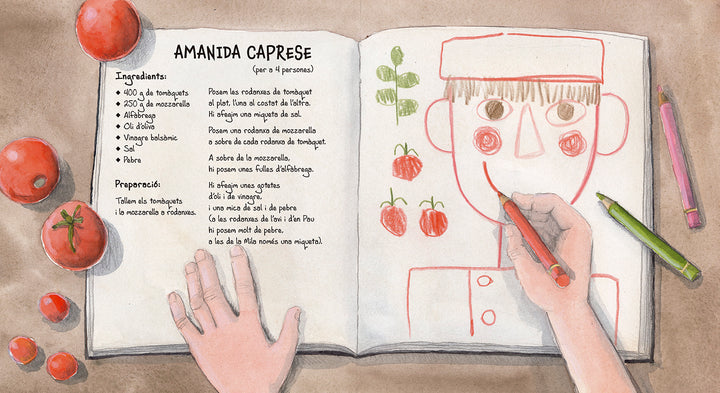 AMANIDA CAPRESE
(per a 4 persones)
Ingredients:
◆ 400 g de tomàquets
◆ 250 g de mozzarella
◆ Alfàbrega
◆ Oli d'oliva
◆ Vinagre balsàmic
◆ Sal
◆ Pebre
Preparació:
Tallem els tomàquets
i la mozzarella a rodanxes.
Posem les rodanxes de tomàquet
al plat, l'una al costat de l'altra.
Hi afegim una miqueta de sal.
Posem una rodanxa de mozzarella
a sobre de cada rodanxa de tomàquet.
A sobre de la mozzarella,
hi posem unes fulles d'alfàbrega.
Hi afegim unes gotetes
d'oli i de vinagre,
i una mica de sal i de pebre
(a les rodanxes de l'avi i d'en Pau
hi posem molt de pebre,
a les de la Mila només una miqueta).